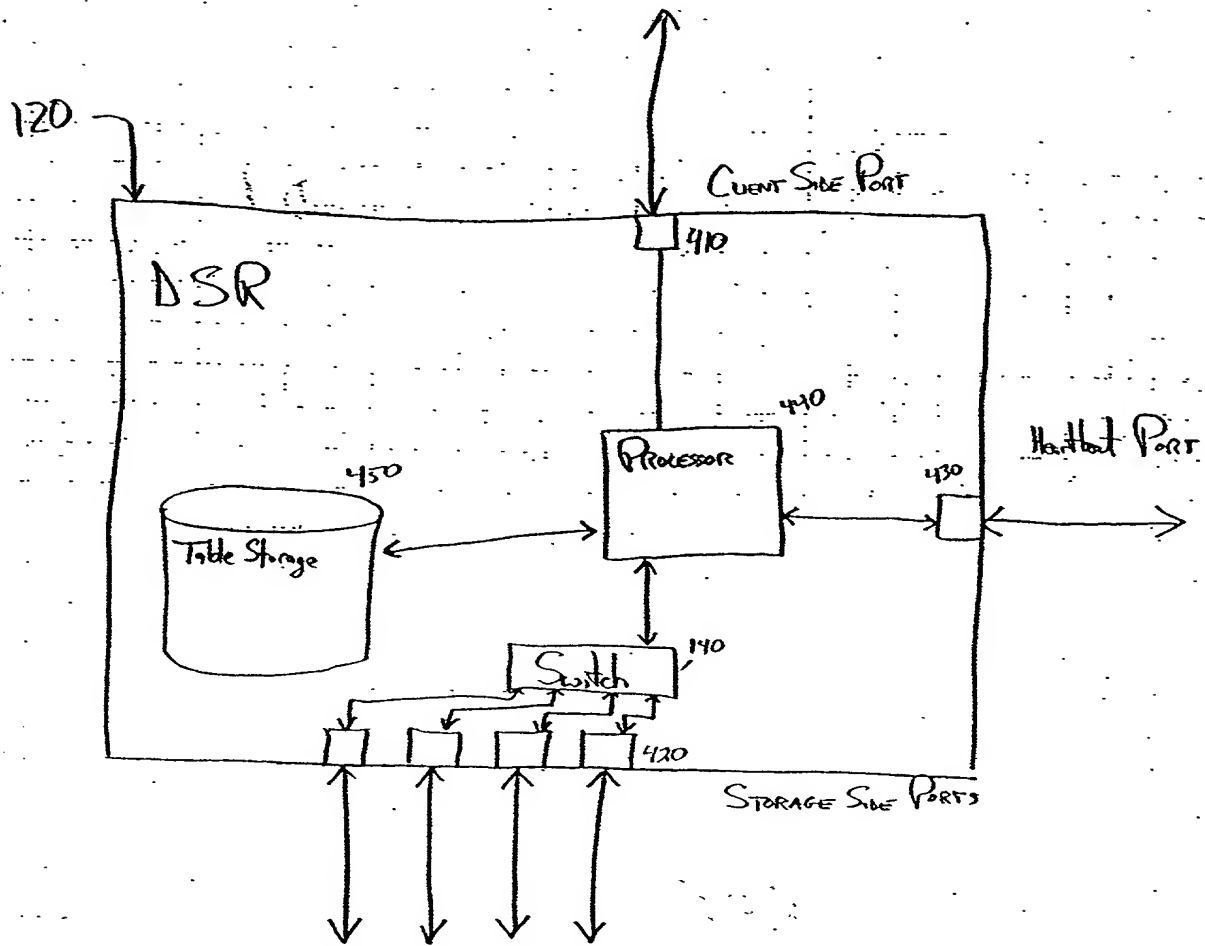 120
CLIENT SIDE PORT
410
DSR
440
PROCESSOR
Heartbeat PORT
430
450
Table Storage
140
Switch
420
STORAGE SIDE PORTS